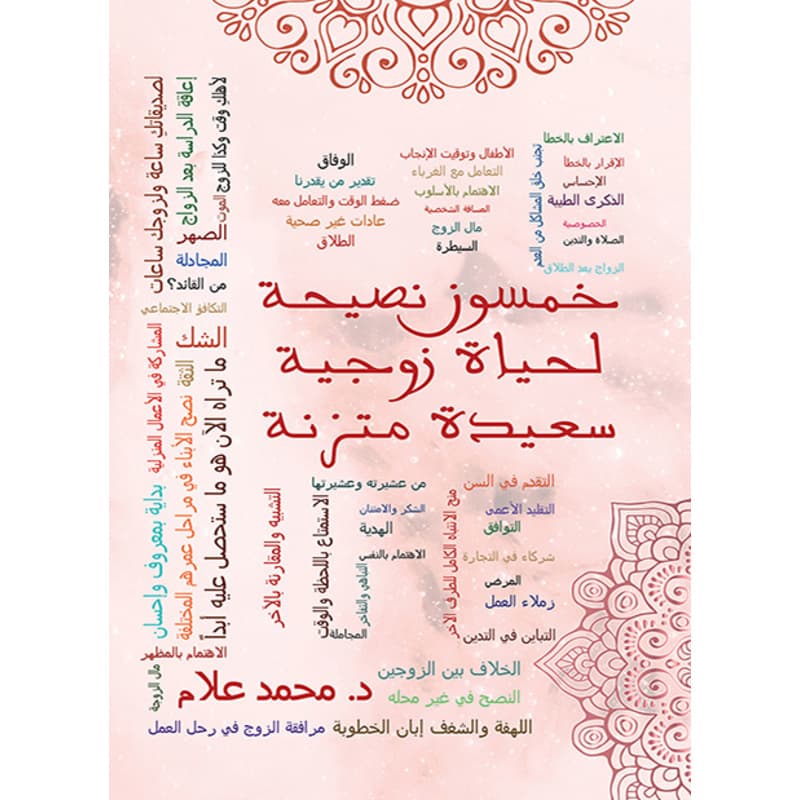 الاعتراف بالخطأ
الإقرار بالخطأ
الإحساس
الذكرى الطيبة
الخصوصية
الصلاة والتدين
الزواج بعد الطلاق
تجنب خلق المشاكل من العدم
الأطفال وتوقيت الإنجاب
التعامل مع الغرباء
الاهتمام بالأسلوب
المسافة الشخصية
مال الزوج
السيطرة
الوفاق
تقدير من يقدرنا
ضغط الوقت والتعامل معه
عادات غير صحية
الطلاق
لأهلك وقت وكذا للزوج
الموت
إعاقة الدراسة بعد الزواج
لصديقاتك ساعة ولزوجك ساعات
الصهر
المجادلة
من القائد؟
التكافؤ الاجتماعي
الشك
خمسون نصيحة
لحياة زوجية
سعيدة متزنة
ما تراه الآن هو ما ستحصل عليه أبداً
الثقة
نصح الأبناء في مراحل عمرهم المختلفة
المشاركة في الأعمال المنزلية
بداية بمعروف وإحسان
الاهتمام بالمظهر
مال الزوجة
التقدم في السن
التقليد الأعمى
التوافق
شركاء في التجارة
المرضي
زملاء العمل
التباين في التدين
منح الانتباه الكامل للطرف الآخر
من عشيرته وعشيرتها
الشكر والامتنان
الهدية
الاهتمام بالنفس
التباهي والتفاخر
المجاملة
الاستمتاع باللحظة والوقت
التشبيه والمقارنة بالآخر
الخلاف بين الزوجين
د. محمد علام
النصح في غير محله
اللهفة والشغف إبان الخطوبة
مرافقة الزوج في رحل العمل